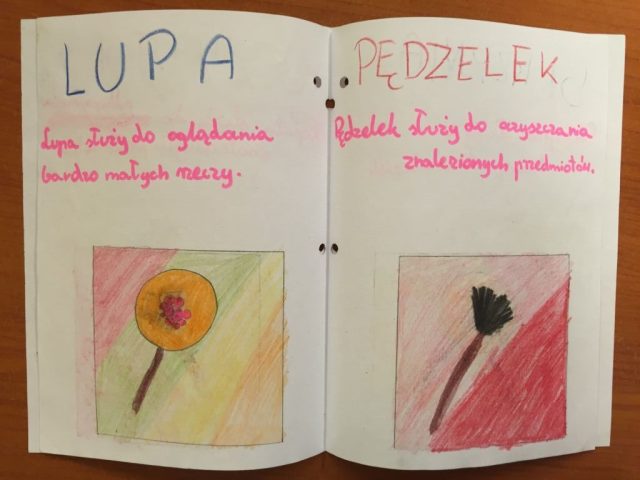 LUPA
Lupa służy do oglądania
bardzo małych rzeczy.
PĘDZELEK
Pędzelek służy do czyszczania
znalezionych przedmiotów.